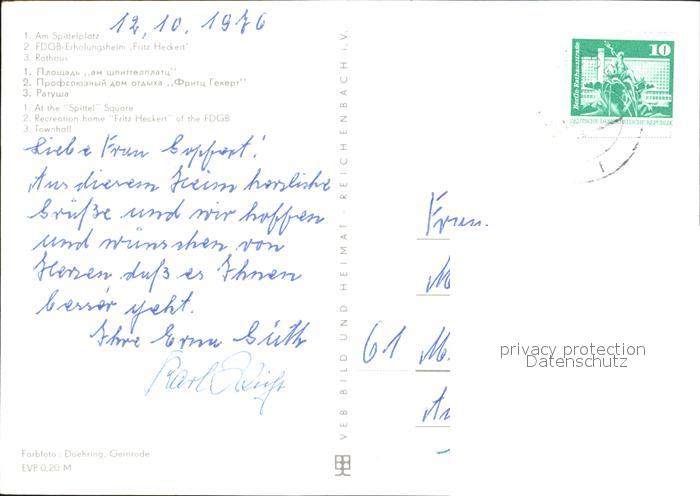 12.10.1976
1. Am Spittelplatz
2. FDGB-Erholungsheim „Fritz Heckert"
3. Rathaus
1. Площадь „ам шпиттеллатц"
2. Профсоюзный дом отдыха „Фритц Гекерт"
3. Ратуша
1. At the "Spittel" Square
2. Recreation home "Fritz Heckert" of the FDGB
3. Townhall
Liebe Frau
Aus diesem Heim herzliche
Grüße und wir hoffen
und wünschen von
Herzen daß es Ihnen
besser geht.
Ihre Erna Güth
Karl
Farbfoto: Doehring, Gernrode
EVP 0,20 M
VEB BILD UND HEIMAT · REICHENBACH i. V.
10
Berlin-Rathausstraße
DEUTSCHE DEMOKRATISCHE REPUBLIK
Frau
M
61 M
privacy protection
Datenschutz